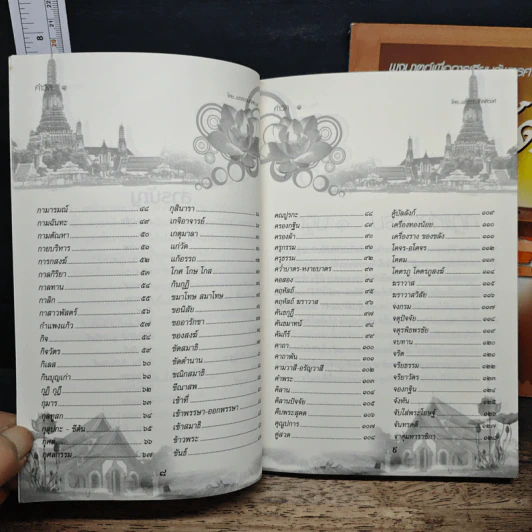 คำวัด
กามารมณ์ ๔๘
กามฉันทะ ๔๙
กามตัณหา ๕๐
กายบริหาร ๕๑
การกสงฆ์ ๕๒
กาลกิริยา ๕๓
กาลทาน ๕๔
กาลิก ๕๕
กาสาวพัสตร์ ๕๖
กำแพงแก้ว ๕๗
กิจ ๕๘
กิจวัตร ๕๙
กิเลส ๖๐
กินบุญเก่า ๖๑
กุฎี กุฏิ ๖๒
กุมาร ๖๓
กุลทูสก ๖๔
กุลุปะกะ - ชีต้น ๖๕
กุศล ๖๖
กุศลกรรม ๖๗
กุสินารา
เกจิอาจารย์
เกตุมาลา
แก่วัด
แก้อรรถ
โกศ โกษ โกส
กัณฑ์
ขมาโทษ สมาโทษ
ขอนิสัย
ขออารักขา
ของสงฆ์
ขัดสมาธิ
ขัดตำนาน
ขณิกสมาธิ
ขีณาสพ
เข้าที่
เข้าพรรษา-ออกพรรษา
เข้าสมาธิ
ข้าวพระ
ขันธ์
๘
คำวัด
คณปูรกะ ๘๘
ครองกฐิน ๘๙
ครองผ้า ๙๐
ครุกรรม ๙๑
ครุธรรม ๙๒
คว่ำบาตร-หงายบาตร ๙๓
คอสอง ๙๔
คฤหัสถ์ ๙๕
คฤหัสถ์ ฆราวาส ๙๖
คันธกุฎี ๙๗
คันธมาทน์ ๙๘
คัมภีร์ ๙๙
คาถา ๑๐๐
คาถาพัน ๑๐๑
คามวาสี-อรัญวาสี ๑๐๒
คำพระ ๑๐๓
คิลาน ๑๐๔
คิลานปัจจัย ๑๐๕
คืบพระสุคต ๑๐๖
คุณูปการ ๑๐๗
คู่สวด ๑๐๘
คู้บัลลังก์ ๑๐๙
เครื่องทองน้อย ๑๑๐
เครื่องราง ของขลัง ๑๑๑
โคจร-อโคจร ๑๑๒
โคดม ๑๑๓
โคตรภู โคตรภูสงฆ์ ๑๑๔
ฆราวาส ๑๑๕
ฆราวาสวิสัย ๑๑๖
จงกรม ๑๑๗
จตุปัจจัย ๑๑๘
จตุรพิธพรชัย ๑๑๙
จบทาน ๑๒๐
จริต ๑๒๑
จริยธรรม ๑๒๒
จริยาวัตร ๑๒๓
จองกฐิน ๑๒๔
จังหัน ๑๒๕
จับใส่พระโอษฐ์ ๑๒๖
จันทรคติ ๑๒๗
จาตุมหาราชิกา ๑๒๘
๙